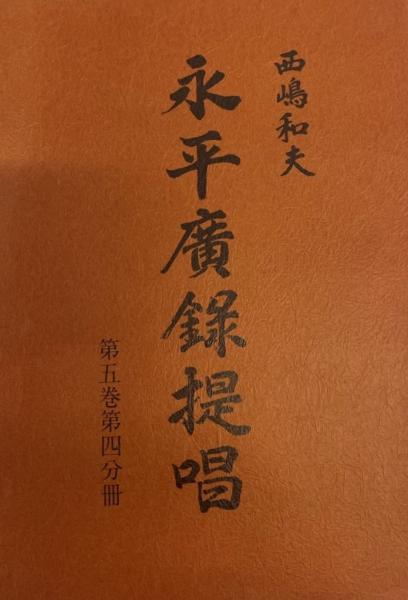 西嶋和夫
永平廣錄提唱
第五巻第四分冊